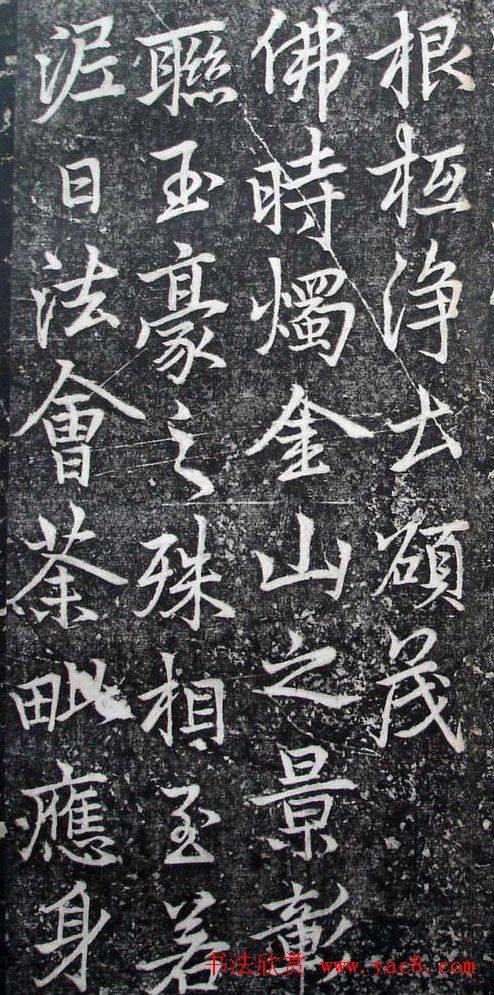 根柢净土碩茂
佛時燭金山之景彰
聯玉豪之殊相至若
泥日法會荼毗應身
书法欣赏 www.yac8.com